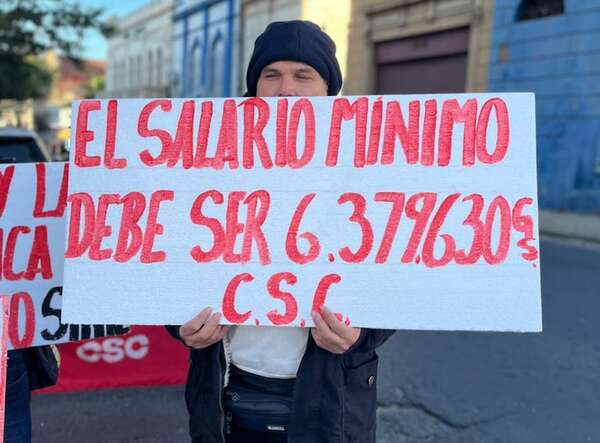 EL SALARIO MÍNIMO
DEBE SER 6.379.630 ₲s
C.S.C.
Y LA
ICA
O
CSC